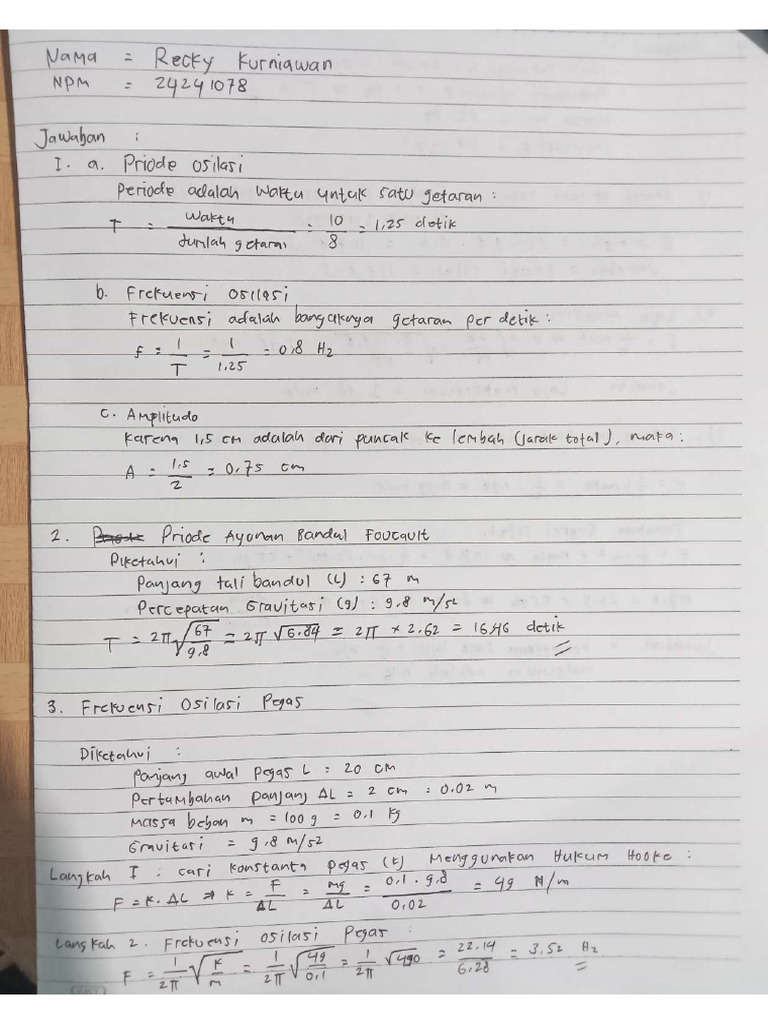 Nama = Recky Kurniawan
NPM = 24241078
Jawaban :
1. a. Priode osilasi
Periode adalah waktu untuk satu getaran :
T = waktu / Jumlah getaran = 10/8 = 1,25 detik
b. Frekuensi osilasi
Frekuensi adalah banyaknya getaran per detik :
f = 1/T = 1/1.25 = 0,8 Hz
c. Amplitudo
Karena 1,5 cm adalah dari puncak ke lembah (jarak total), maka :
A = 1.5/2 = 0,75 cm
2. Priode Ayunan Bandul Foucault
Diketahui :
Panjang tali bandul (L) : 67 m
Percepatan Gravitasi (g) : 9.8 m/s2
T = 2π √67/9.8 = 2π √6.84 = 2π × 2.62 = 16,46 detik
3. Frekuensi Osilasi Pegas
Diketahui :
Panjang awal pegas L = 20 cm
Pertambahan panjang ΔL = 2 cm = 0.02 m
Massa beban m = 100 g = 0.1 kg
Gravitasi = 9.8 m/s2
Langkah 1 : cari konstanta pegas (k) Menggunakan Hukum Hooke :
F = K. ΔL ⇒ K = F/ΔL = mg/ΔL = 0.1 . 9.8/0.02 = 49 N/m
Langkah 2. Frekuensi osilasi Pegas :
F = 1/2π √K/m = 1/2π √49/0.1 = 1/2π √490 = 22.14/6.28 = 3.52 Hz